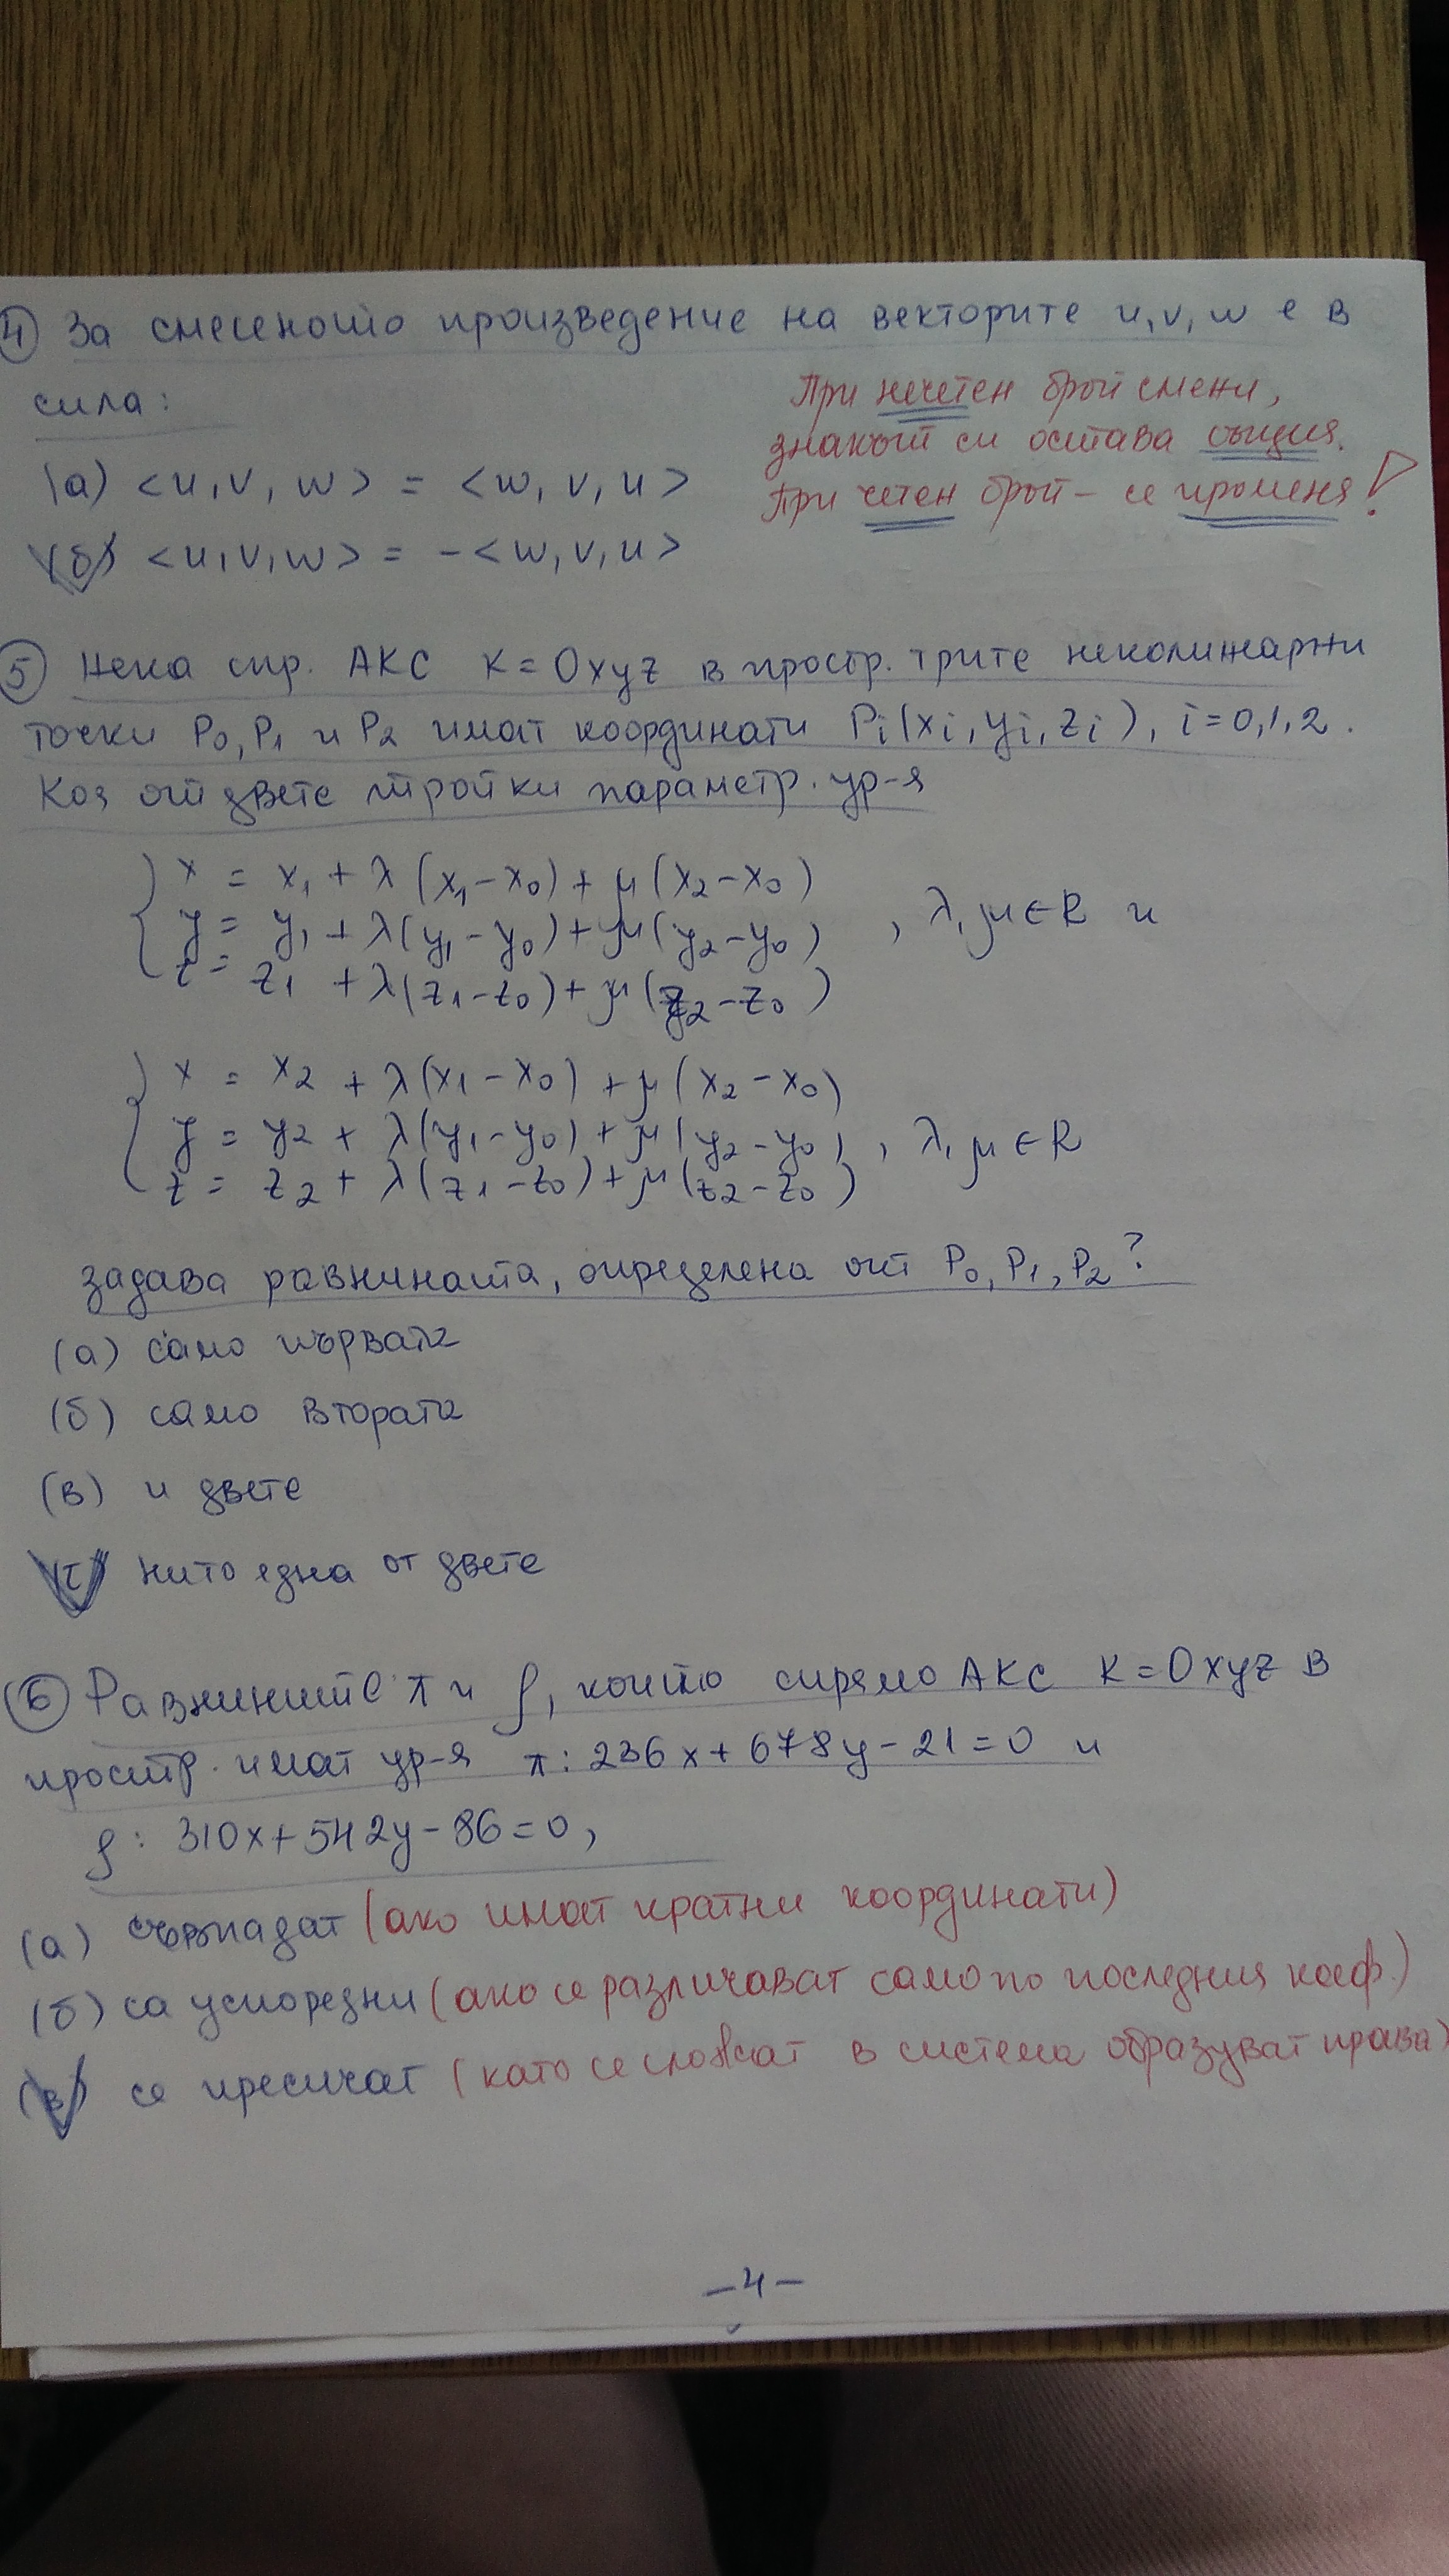 ④ За смесеното произведение на векторите u, v, w е в
сила:
При нечетен брой смени,
знакът си остава същия.
При четен брой – се променя!
(а) <u, v, w> = <w, v, u>
(б) <u, v, w> = -<w, v, u>
⑤ Нека спр. АКС K=Oxyz в простр. трите неколинеарни
точки P₀, P₁ и P₂ имат координати Pᵢ(xᵢ, yᵢ, zᵢ), i=0,1,2.
Коя от двете тройки параметр. ур-я
x = x₁ + λ(x₁-x₀) + μ(x₂-x₀)
y = y₁ + λ(y₁-y₀) + μ(y₂-y₀) , λ, μ ∈ R и
z = z₁ + λ(z₁-z₀) + μ(z₂-z₀)
x = x₂ + λ(x₁-x₀) + μ(x₂-x₀)
y = y₂ + λ(y₁-y₀) + μ(y₂-y₀) , λ, μ ∈ R
z = z₂ + λ(z₁-z₀) + μ(z₂-z₀)
задава равнината, определена от P₀, P₁, P₂?
(а) само първата
(б) само втората
(в) и двете
(г) нито една от двете
⑥ Равнините π и ρ, които спрямо АКС K=Oxyz в
простр. имат ур-я π: 236x + 678y - 21 = 0 и
ρ: 310x + 542y - 86 = 0,
(а) съвпадат (ако имат кратни координати)
(б) са успоредни (ако се различават само по последния коеф.)
(в) се пресичат (като се сложат в система образуват права)
-4-